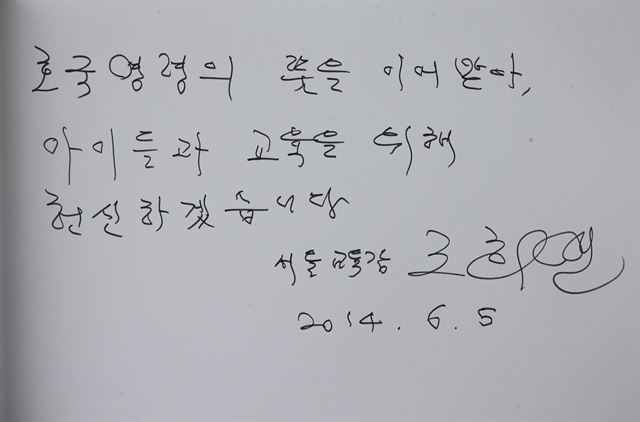 호국영령의 뜻을 이어받아,
아이들과 교육을 위해
헌신하겠습니다
서울교육감 조희연
2014. 6. 5